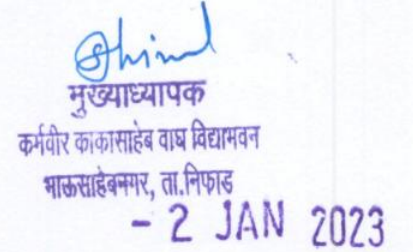 मुख्याध्यापक
कर्मवीर काकासाहेब वाघ विद्याभवन
भाऊसाहेबनगर, ता.निफाड
- 2 JAN 2023